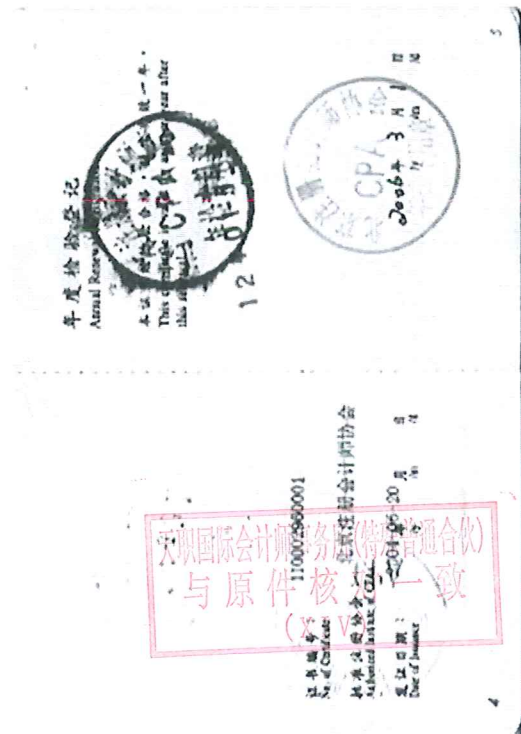 年度检验登记
Annual Renewal
本证书经检验合格，继续有效一年。
This certificate is valid for another year after
this renewal.
CPA
12
5
CPA
2006年3月1日
证书编号：
No. of Certificate
110002960001
批准注册协会：
Authorized Institute of CPAs
北京注册会计师协会
发证日期：
Date of Issuance
年 月 日
天职国际会计师事务所(特殊普通合伙)
与原件核对一致
4